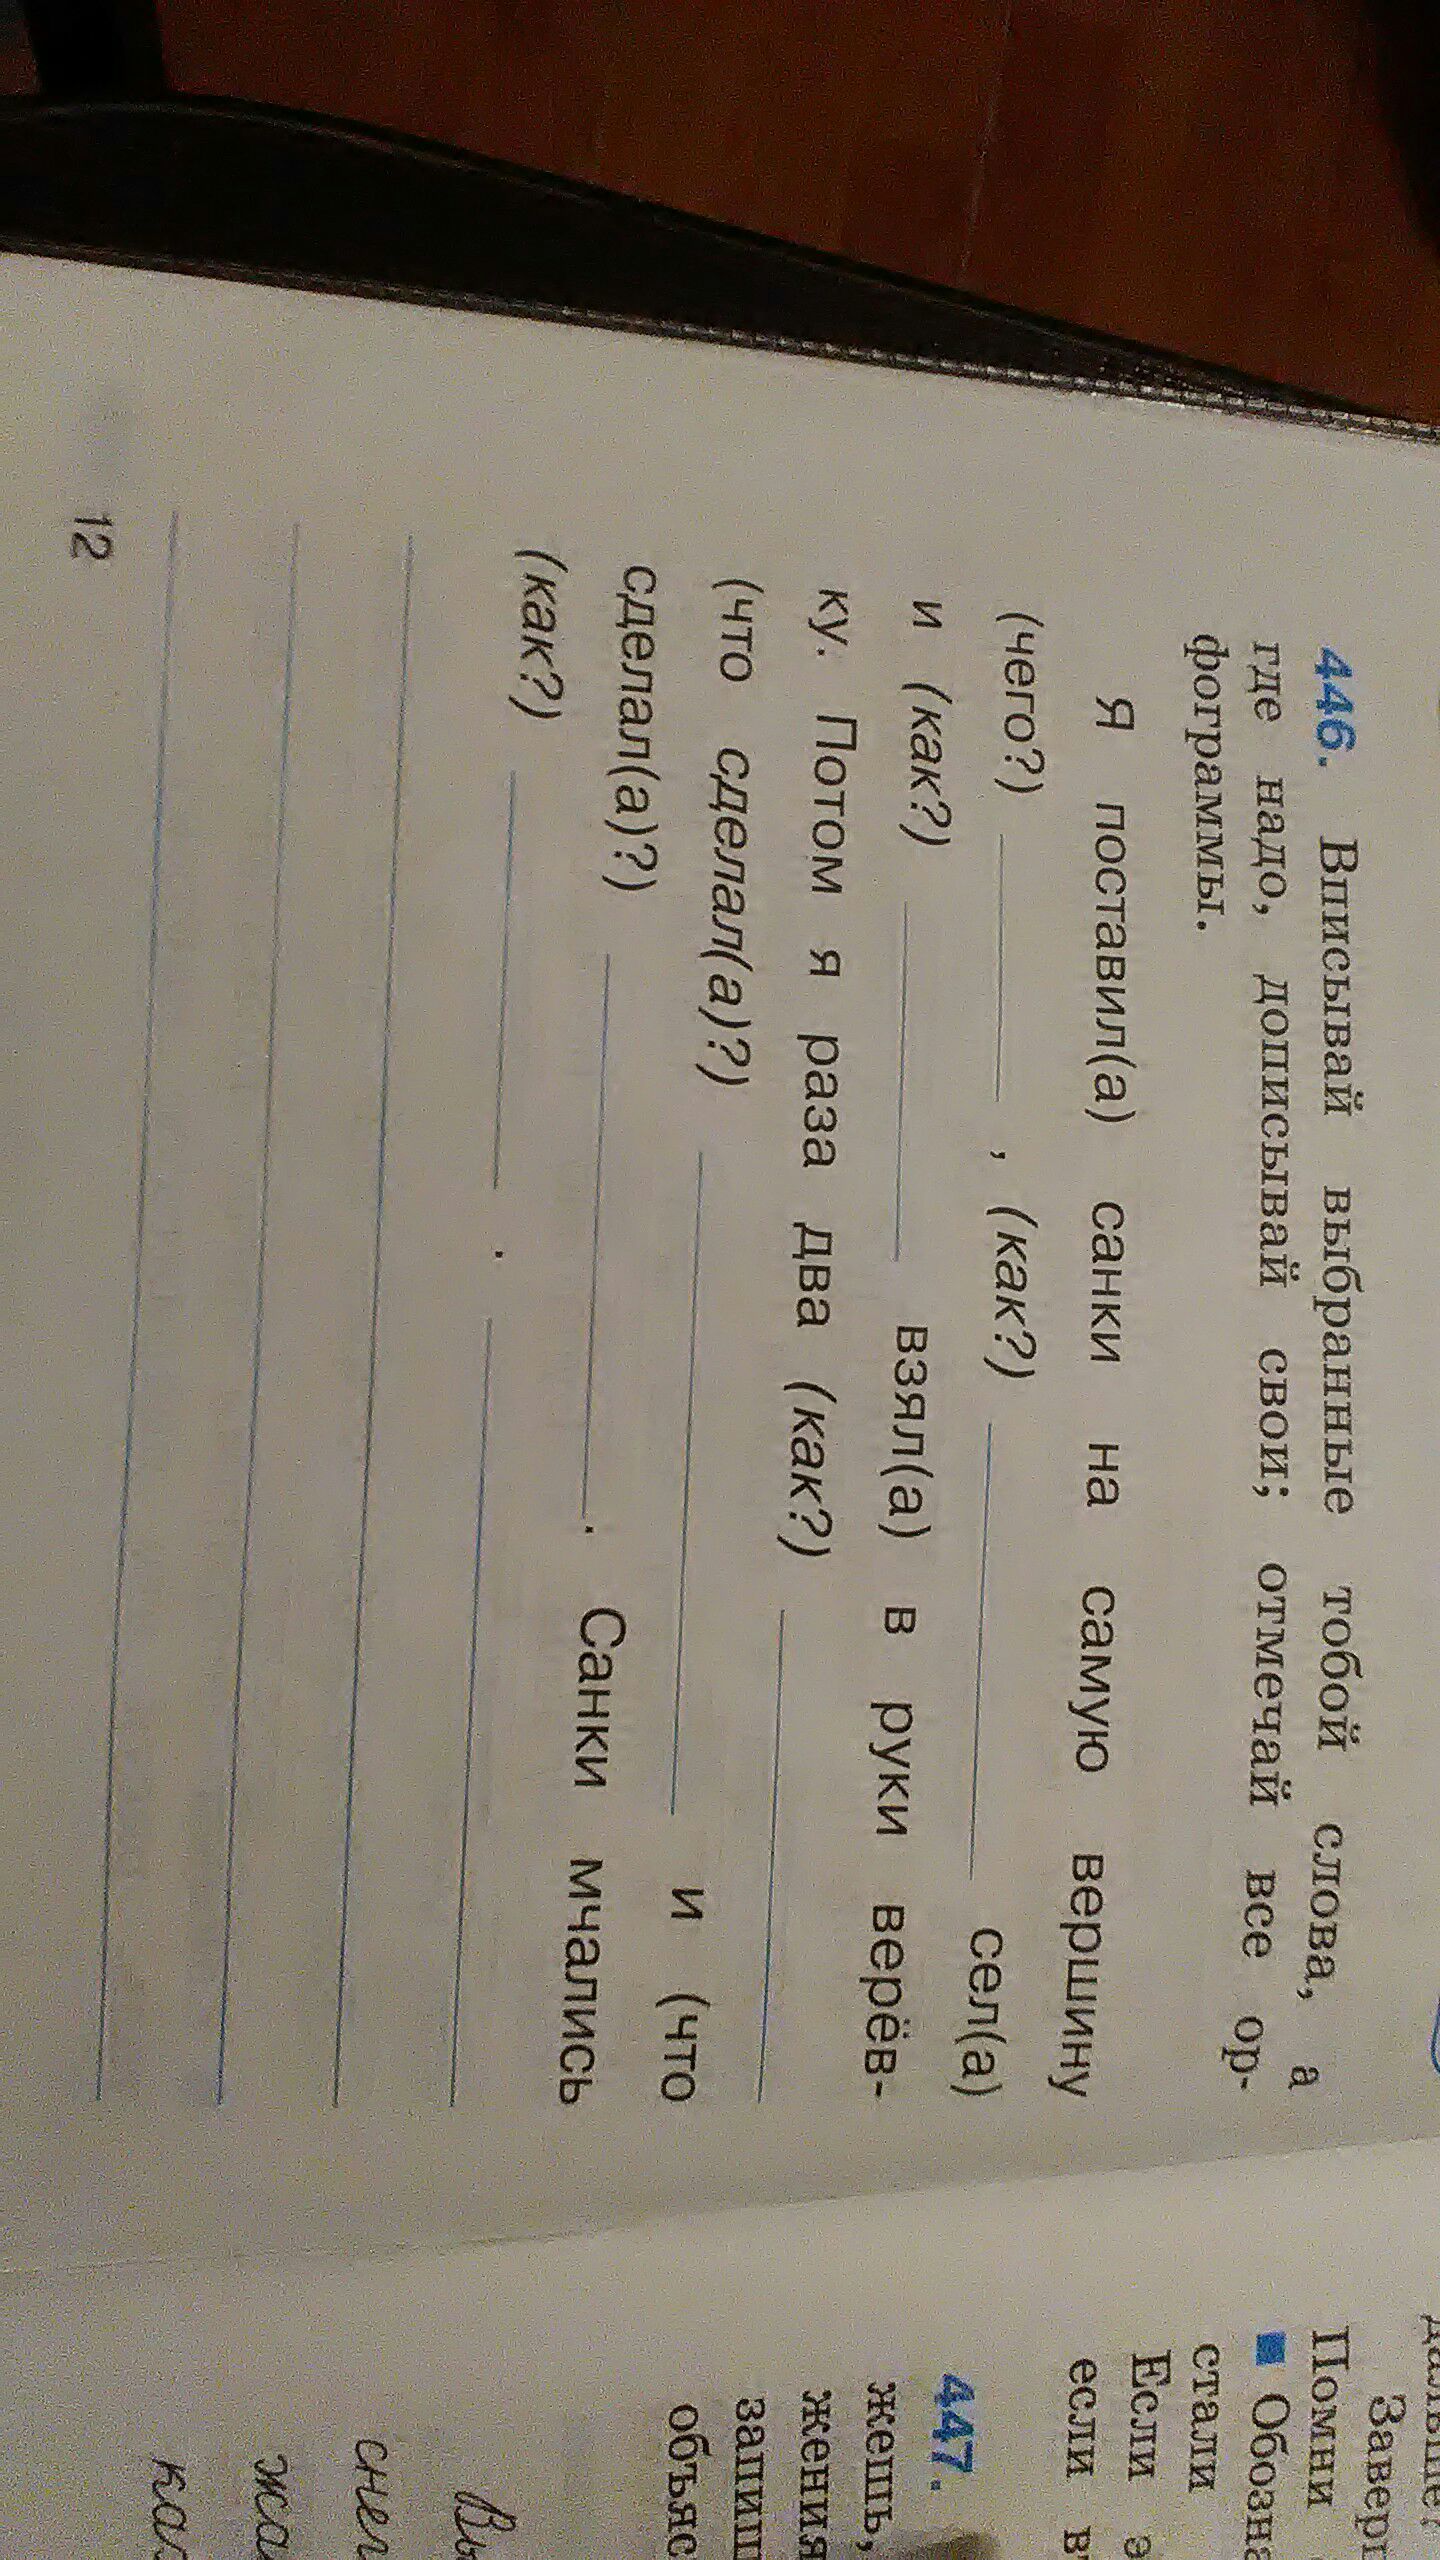 446. Вписывай выбранные тобой слова, а
где надо, дописывай свои; отмечай все ор-
фограммы.
Я поставил(а) санки на самую вершину
(чего?) , (как?) сел(а)
и (как?) взял(а) в руки верёв-
ку. Потом я раза два (как?)
(что сделал(а)?) и (что
сделал(а)?) . Санки мчались
(как?) .
12
Помни
■ Обозна
стали
Если э
если в
447.
жешь,
жения
запиш
объяс
Вы
снег
жа